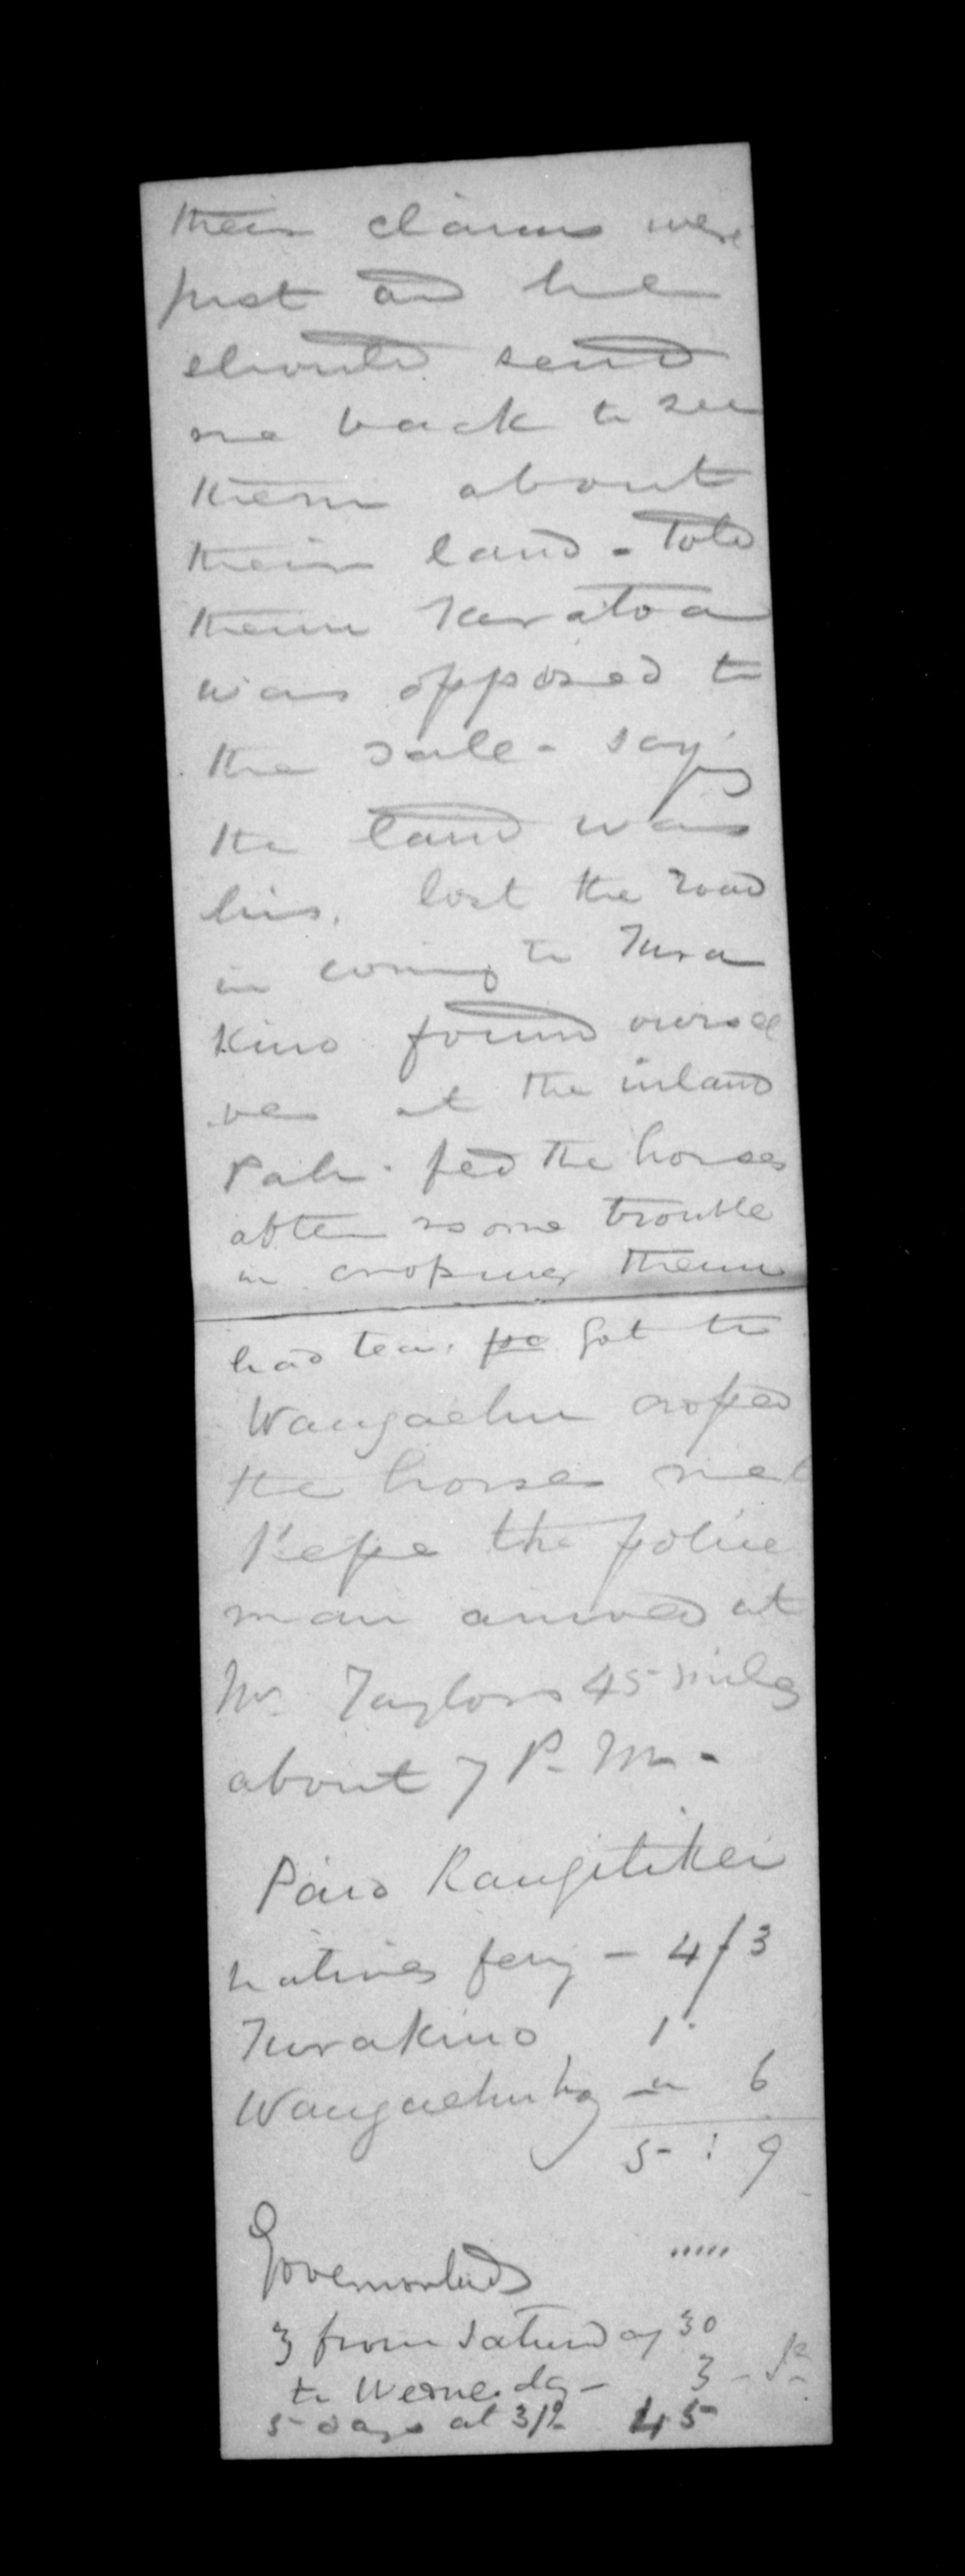 their claims were
just and he
should send
me back to see
them about
their land - Told
them Keratoa
was opposed to
the sale - sayg
the land was
his. lost the road
in coming to Tura
Kino found oursel
ves at the inland
Pah. fed the horses
after some trouble
in crossing them
had tea. Got to
Wangaehu crossed
the horses met
Kepe the police
man arrived at
Mr. Taylors 45 miles
about 7 P. M -
Paid Rangitikei
natives ferry - 4/3
Turakino 1.
Wangaehu - " 6
5 : 9
Governorlads
3 from Saturday 30
to Wednesday - 3
5 days at 3/- 45